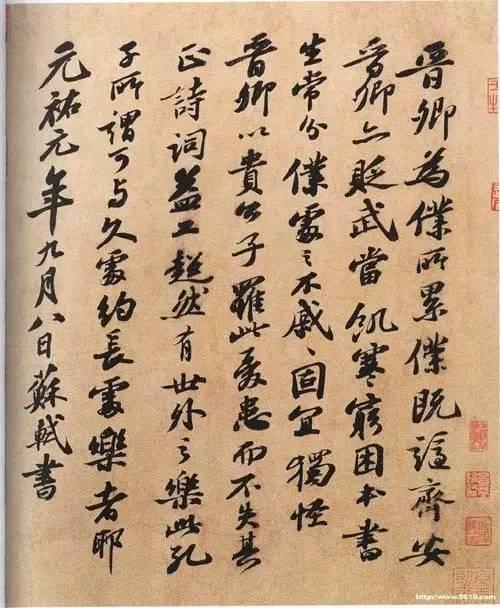 晉卿為僕所累僕既謫齊安
晉卿亦貶武當飢寒窮困本書
生常分僕處之不戚〻固宜獨怪
晉卿以貴公子罹此憂患而不失其
正詩詞益工超然有世外之樂此孔
子所謂可与久處約長處樂者耶
元祐元年九月八日蘇軾書
http://www.9610.com